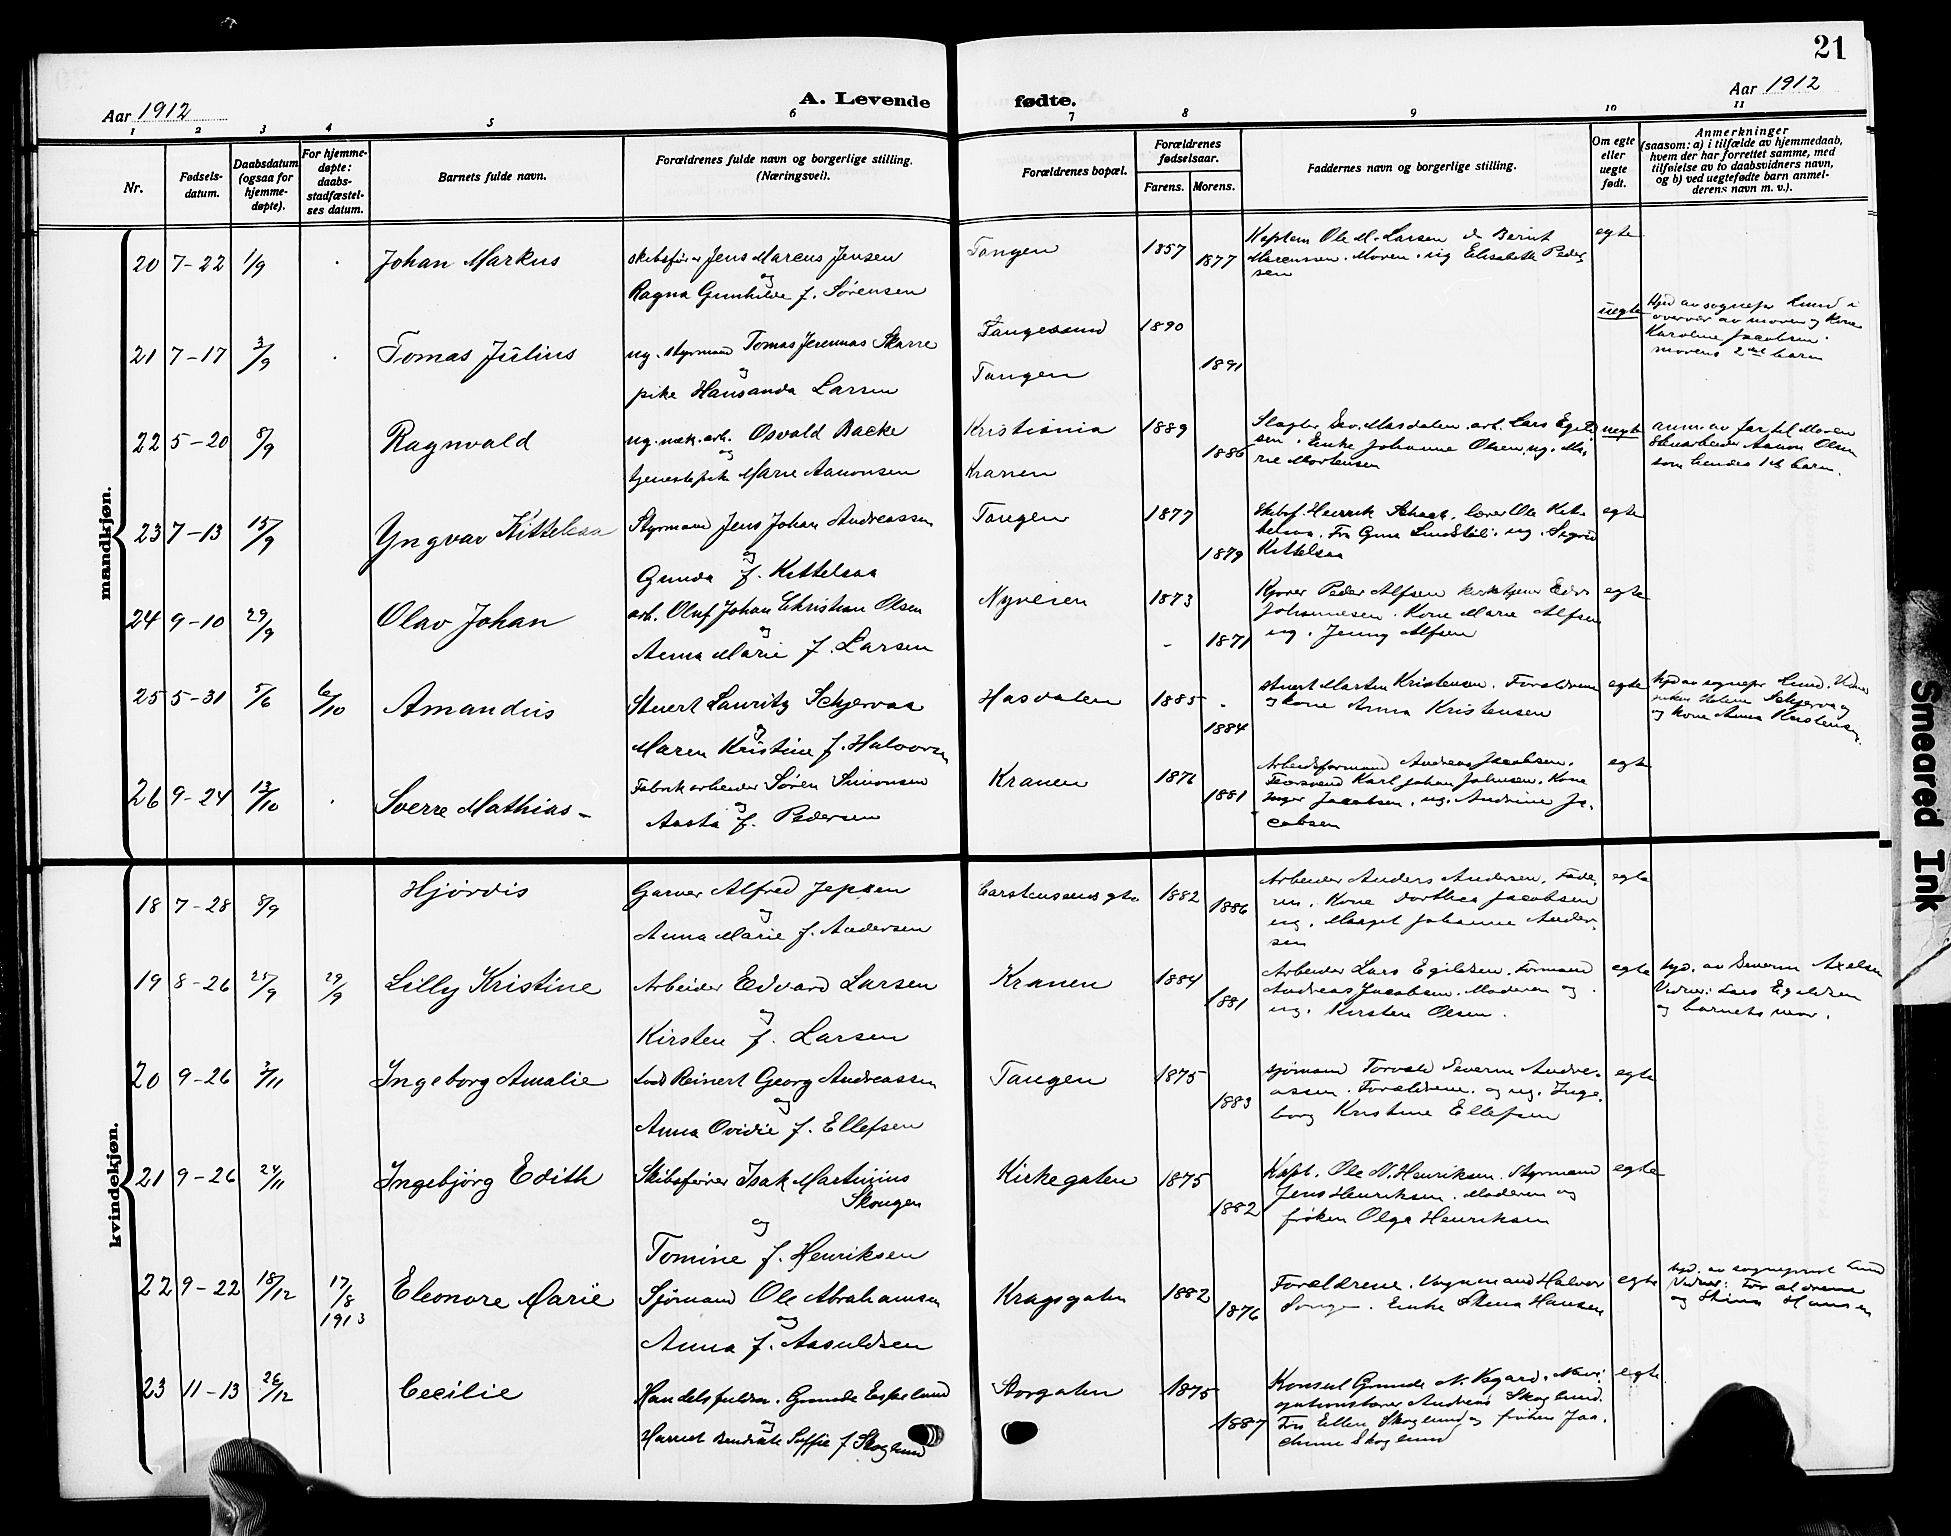 21
Aar 1912
A. Levende
fødte.
Aar 1912
1 2 3 4 5 6 7 8 9 10 11
Nr.
Fødsels-
datum.
Daabsdatum
(ogsaa for
hjemme-
døpte).
For hjemme-
døpte:
daabs-
stadfæstel-
ses datum.
Barnets fulde navn.
Forældrenes fulde navn og borgerlige stilling.
(Næringsvei).
Forældrenes bopæl.
Forældrenes
fødselsaar.
Farens. Morens.
Faddernes navn og borgerlige stilling.
Om egte
eller
uegte
født.
Anmerkninger
(saasom: a) i tilfælde av hjemmedaab,
hvem der har forrettet samme, med
tilføielse av to daabsvidners navn,
og b) ved uegtefødte barn anmel-
derens navn m. v.).
mandkjøn.
20 7-22 1/9 Johan Markus
Jens Marcus Jensen
og
Ragna Gunhilde f. Sørensen
Tangen 1857 1877
Kaptein Ole M. Larsen & Bernt
Marcussen. Moren. ug Elisabeth Peder-
sen
egte
21 7-17 3/9 Tomas Julius
ug. styrmand Tomas Jeremias Skarre
og
pike Hansanda Larsen
Tangen
1890 1891
uegte
av sognepr Lund i
overvær av moren og Kone
Karoline Jacobsen.
morens 2det barn
22 5-20 8/9 Ragnvald
ug. mek. arb. Osvald Backe
og
tjenestepike Marie Aanonsen
Kristiania
Kranen
1889 1886
arb. Lars Egild-
sen. Enke Johanne Olsen, ug. Ma-
rie Mortensen
uegte
anm. av far til Moren
Stenarbeider Aanon Olsen
som hendes 1ste barn.
23 7-13 15/9 Yngvar Kittelsaa
Styrmand Jens Johan Andreassen
og
Gunda f. Kittelsaa
Tangen 1877 1879
Henrik lærer Ole Kit-
telsaa. Fru ug. Sigrid
Kittelsaa
egte
24 9-10 29/9 Olav Johan
arb. Oluf Johan Christian Olsen
og
Anna Marie f. Larsen
Nyveien 1873 1871
Peder Alfsen kirketjener Edv.
Johannesen. Kone Marie Alfsen
ug. Jenny Alfsen
egte
25 5-31 5/6 6/10 Amandus
Stuert Lauritz Schjervaa
og
Maren Kristine f. Halvorsen
Hasdalen 1885 1884
Stuert Morten Kristensen. Forældrene
og kone Anna Kristensen
egte
hjd av sognepr Lund. Vidner
og kone Anna Kristensen.
26 9-24 13/10 Sverre Mathias
Fabrikarbeider Søren Simonsen
og
Aasta f. Pedersen
Kranen 1876 1881
Arbeidsformand Andreas Jacobsen.
Karl Johan Johnsen. Kone
Inger Jacobsen. ug. Andrine Ja-
cobsen
egte
kvindekjøn.
18 7-28 8/9 Hjørdis
Garver Alfred Jepsen
og
Anna Marie f. Andersen
Carstensensgte 1882 1886
Arbeider Anders Andersen. Fade-
ren. Kone Dorthea Jacobsen
ug. Margit Johanne Ander-
sen
egte
19 8-26 25/9 29/9 Lilly Kristine
Arbeider Edvard Larsen
og
Kirsten f. Larsen
Kranen 1884 1881
Arbeider Lars Egildsen. Formand
Andreas Jacobsen. Moderen og
ug. Kirsten Olsen.
egte
hjd. av Severin Axelsen
Vidner: Lars Egildsen
og barnets mor.
20 9-26 3/11 Ingeborg Amalie
Lods Reinert Georg Andreassen
og
Anna Ovidie f. Ellefsen
Tangen 1875 1883
Sjømand Torvald Severin Andre-
assen. Forældrene. og ug. Inge-
borg Kristine Ellefsen
egte
21 9-26 24/11 Ingebjørg Edith
Skibsfører Isak Martinius
Skougen
og
Tomine f. Henriksen
Kirkegaten 1875 1882
Kapt. Ole N. Henriksen. Styrmand
Jens Henriksen. Moderen og
frøken Olga Henriksen
egte
22 9-22 18/12 17/8 1913 Eleonore Marie
Sjømand Ole Abrahamsen
og
Anna f. Aasuldsen
Kragsgaten 1882 1876
Forældrene. Vognmand Halvor
Enke Stina Hansen
egte
hjd. av sogneprest Lund
Vidner: Forældrene
og Stina Hansen
23 11-13 26/12 Cecilie
Handelsfuldm. Gunde Eskelund
og
Harriet Bendikte Soffie f. Skoglund
Storgaten 1875 1887
Konsul Gunde N. Vegard. Navi-
gationslærer Andreas Skoglund.
Fru Ellen Skoglund og frøken Joa-
chime Skoglund
egte
Smeared Ink